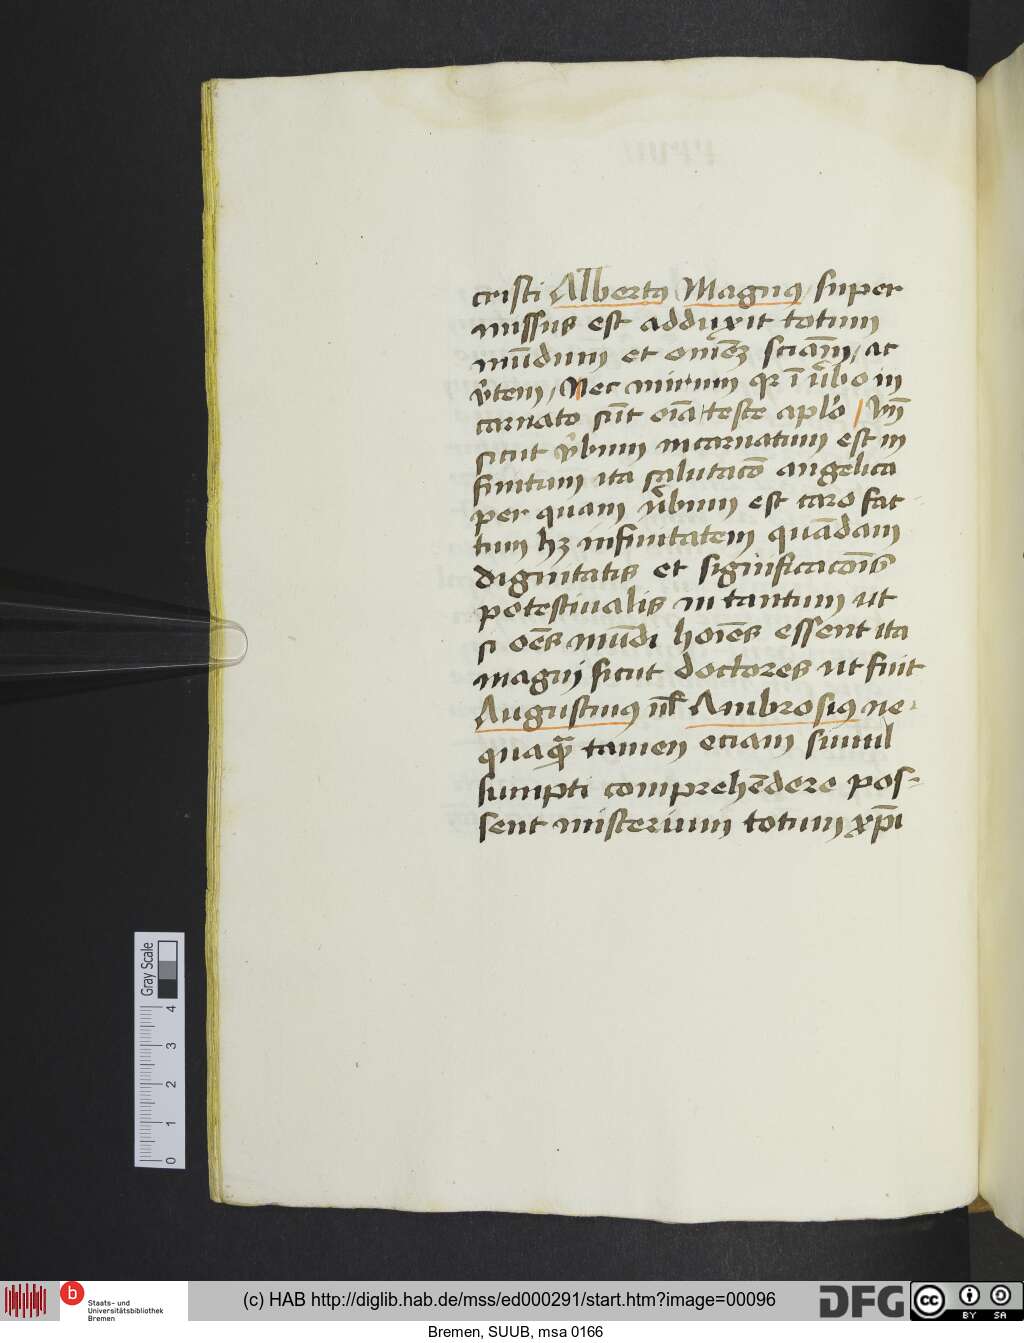 cristi Albertꝰ Magnꝰ super
missus est adduxit totum
mūdum et omē̄ꝫ sciām, ac
v̓tem, Nec mirum qr ī v̓bo in
carnato sūt oīa teste aplō / Vn̄
sicut v̓bum incarnatum est in
finitum ita salutacō angelica
per quam v̓bum est caro fac-
tum hꝫ infinitatem quādam
dignitatis et significacōis
potestiualis in tantum ut
si oēs mūdi hoīes essent ita
magni sicut doctores ut fuit
Augustinꝰ ul̄ Ambrosiꝰ ne-
quaqᷓ tamen eciam simul
sumpti comprehēdere pos-
sent misterium totum xp̄i
Gray Scale
0 1 2 3 4
b Staats- und
Universitätsbibliothek
Bremen
(c) HAB http://diglib.hab.de/mss/ed000291/start.htm?image=00096
DFG
cc BY SA
Bremen, SUUB, msa 0166